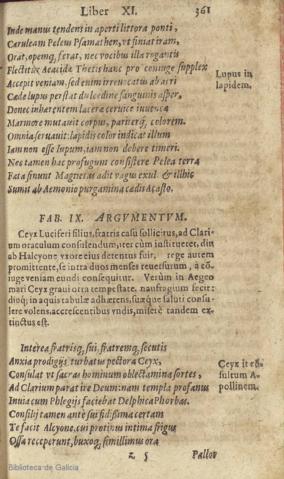 Liber XI. 361
Inde manus tendens in aperti littora ponti,
Cæruleam Peleus Psamathen, vt finiat iram,
Orat, opemq; ferat, nec vocibus illa rogantis
Flectitur Æacidæ Thetis hanc pro coniuge supplex
Accepit veniam. sed enim irreuocatus ab acri
Cæde lupus perstat dulcedine sanguinis asper,
Donec inhærentem laceræ ceruice iuuencæ
Marmore mutauit corpus, præterq; colorem.
Omnia seruauit: lapidis color indicat illum
Iam non esse lupum, iam non debere timeri.
Nec tamen hac profugum consistere Pelea terra
Fata sinunt Magnetas adit vagus exul & illhic
Sumit ab Aemonio purgamina cædis Acasto.
Lupus in
lapidem.
FAB. IX. ARGVMENTVM.
Ceyx Luciferi filius, fratris casu sollicitus, ad Clari-
um oraculum consulendum, iter cùm institueret, diu
ab Halcyone vxore eius detentus fuit, rege autem
promittente, se intra duos menses reuersurum, à cō-
iuge veniam eundi consequitur. Verùm in Aegeo
mari Ceyx graui orta tempestate, naufragium fecit:
dióq; in aquis tabulæ adhærens, suæque saluti consu-
lere volens, accrescentibus vndis, miserè tandem ex-
tinctus est.
Interea fratrisq; sui, fratremq; secutis
Anxia prodigijs turbatus pectora Ceyx,
Consulat vt sacras hominum oblectamina sortes,
Ad Clarium parat ire Deum: nam templa profanus
Inuia cum Phlegijs faciebat Delphica Phorbas.
Consilij tamen antè sui fidissima certam
Te facit Alcyone, cui protinus intima frigus
Ossa receperunt, buxoq; simillimus ora
Ceyx it cō-
sultum A-
pollinem.
z 5 Pallor
Biblioteca de Galicia